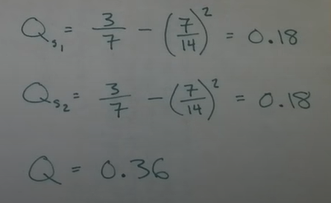 Q_{s_1} = 3/7 - (7/14)^2 = 0.18
Q_{s_2} = 3/7 - (7/14)^2 = 0.18
Q = 0.36